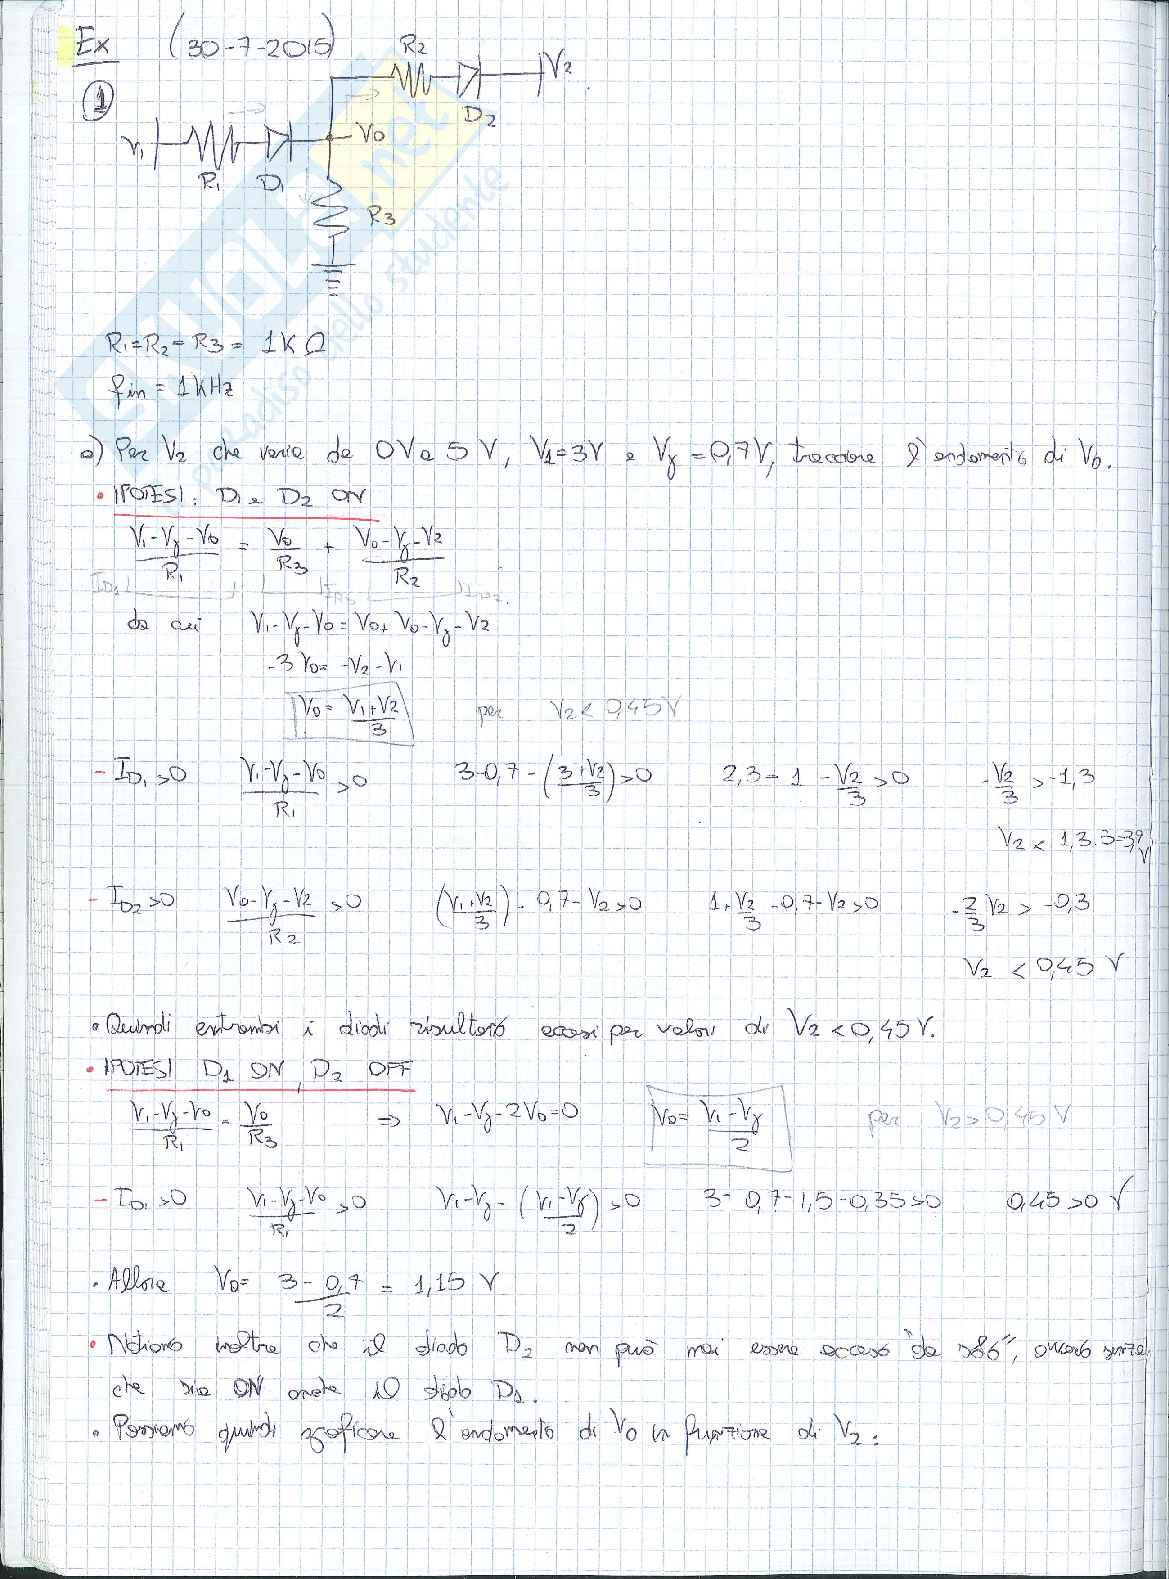 Ex (30-7-2015)
1
R2
V2
D2
V1
R1
D1
V0
R3
R1=R2=R3= 1KΩ
fin= 1KHz
a) Per V2 che varia da 0V a 5V, V1=3V e Vγ=0,7V, tracciare l'andamento di V0.
• IPOTESI: D1 e D2 ON
(V1-Vγ-V0)/R1 = V0/R3 + (V0-Vγ-V2)/R2
ID1 IR3 ID2
da cui V1-Vγ-V0=V0+V0-Vγ-V2
-3V0= -V2-V1
V0= (V1+V2)/3 per V2<0,45V
- ID1>0 (V1-Vγ-V0)/R1 >0 3-0,7-((3+V2)/3)>0 2,3-1-V2/3>0 -V2/3>-1,3
V2< 1,3.3=3,9V
- ID2>0 (V0-Vγ-V2)/R2 >0 ((V1+V2)/3)-0,7-V2>0 1+V2/3-0,7-V2>0 -2/3V2>-0,3
V2 <0,45 V
• Quindi entrambi i diodi risultano accesi per valori di V2<0,45V.
• IPOTESI D1 ON, D2 OFF
(V1-Vγ-V0)/R1 = V0/R3 => V1-Vγ-2V0=0 V0= (V1-Vγ)/2 per V2>0,45V
- ID1>0 (V1-Vγ-V0)/R1 >0 V1-Vγ-((V1-Vγ)/2)>0 3-0,7-1,5-0,35>0 0,45>0 √
• Allora V0= (3-0,7)/2 = 1,15 V
• Notiamo inoltre che il diodo D2 non può mai essere acceso "da solo", ovvero senza
che sia ON anche il diodo D1.
• Possiamo quindi graficare l'andamento di V0 in funzione di V2:
SKUOLA.net
paradiso dello studente